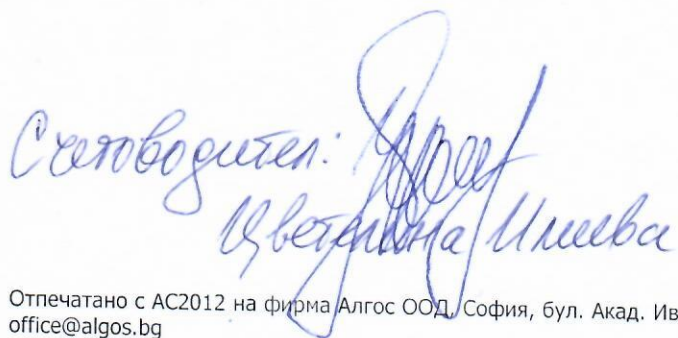 Счетоводител:
Цветелина Илиева
Отпечатано с АС2012 на фирма Алгос ООД, София, бул. Акад. Ив
office@algos.bg